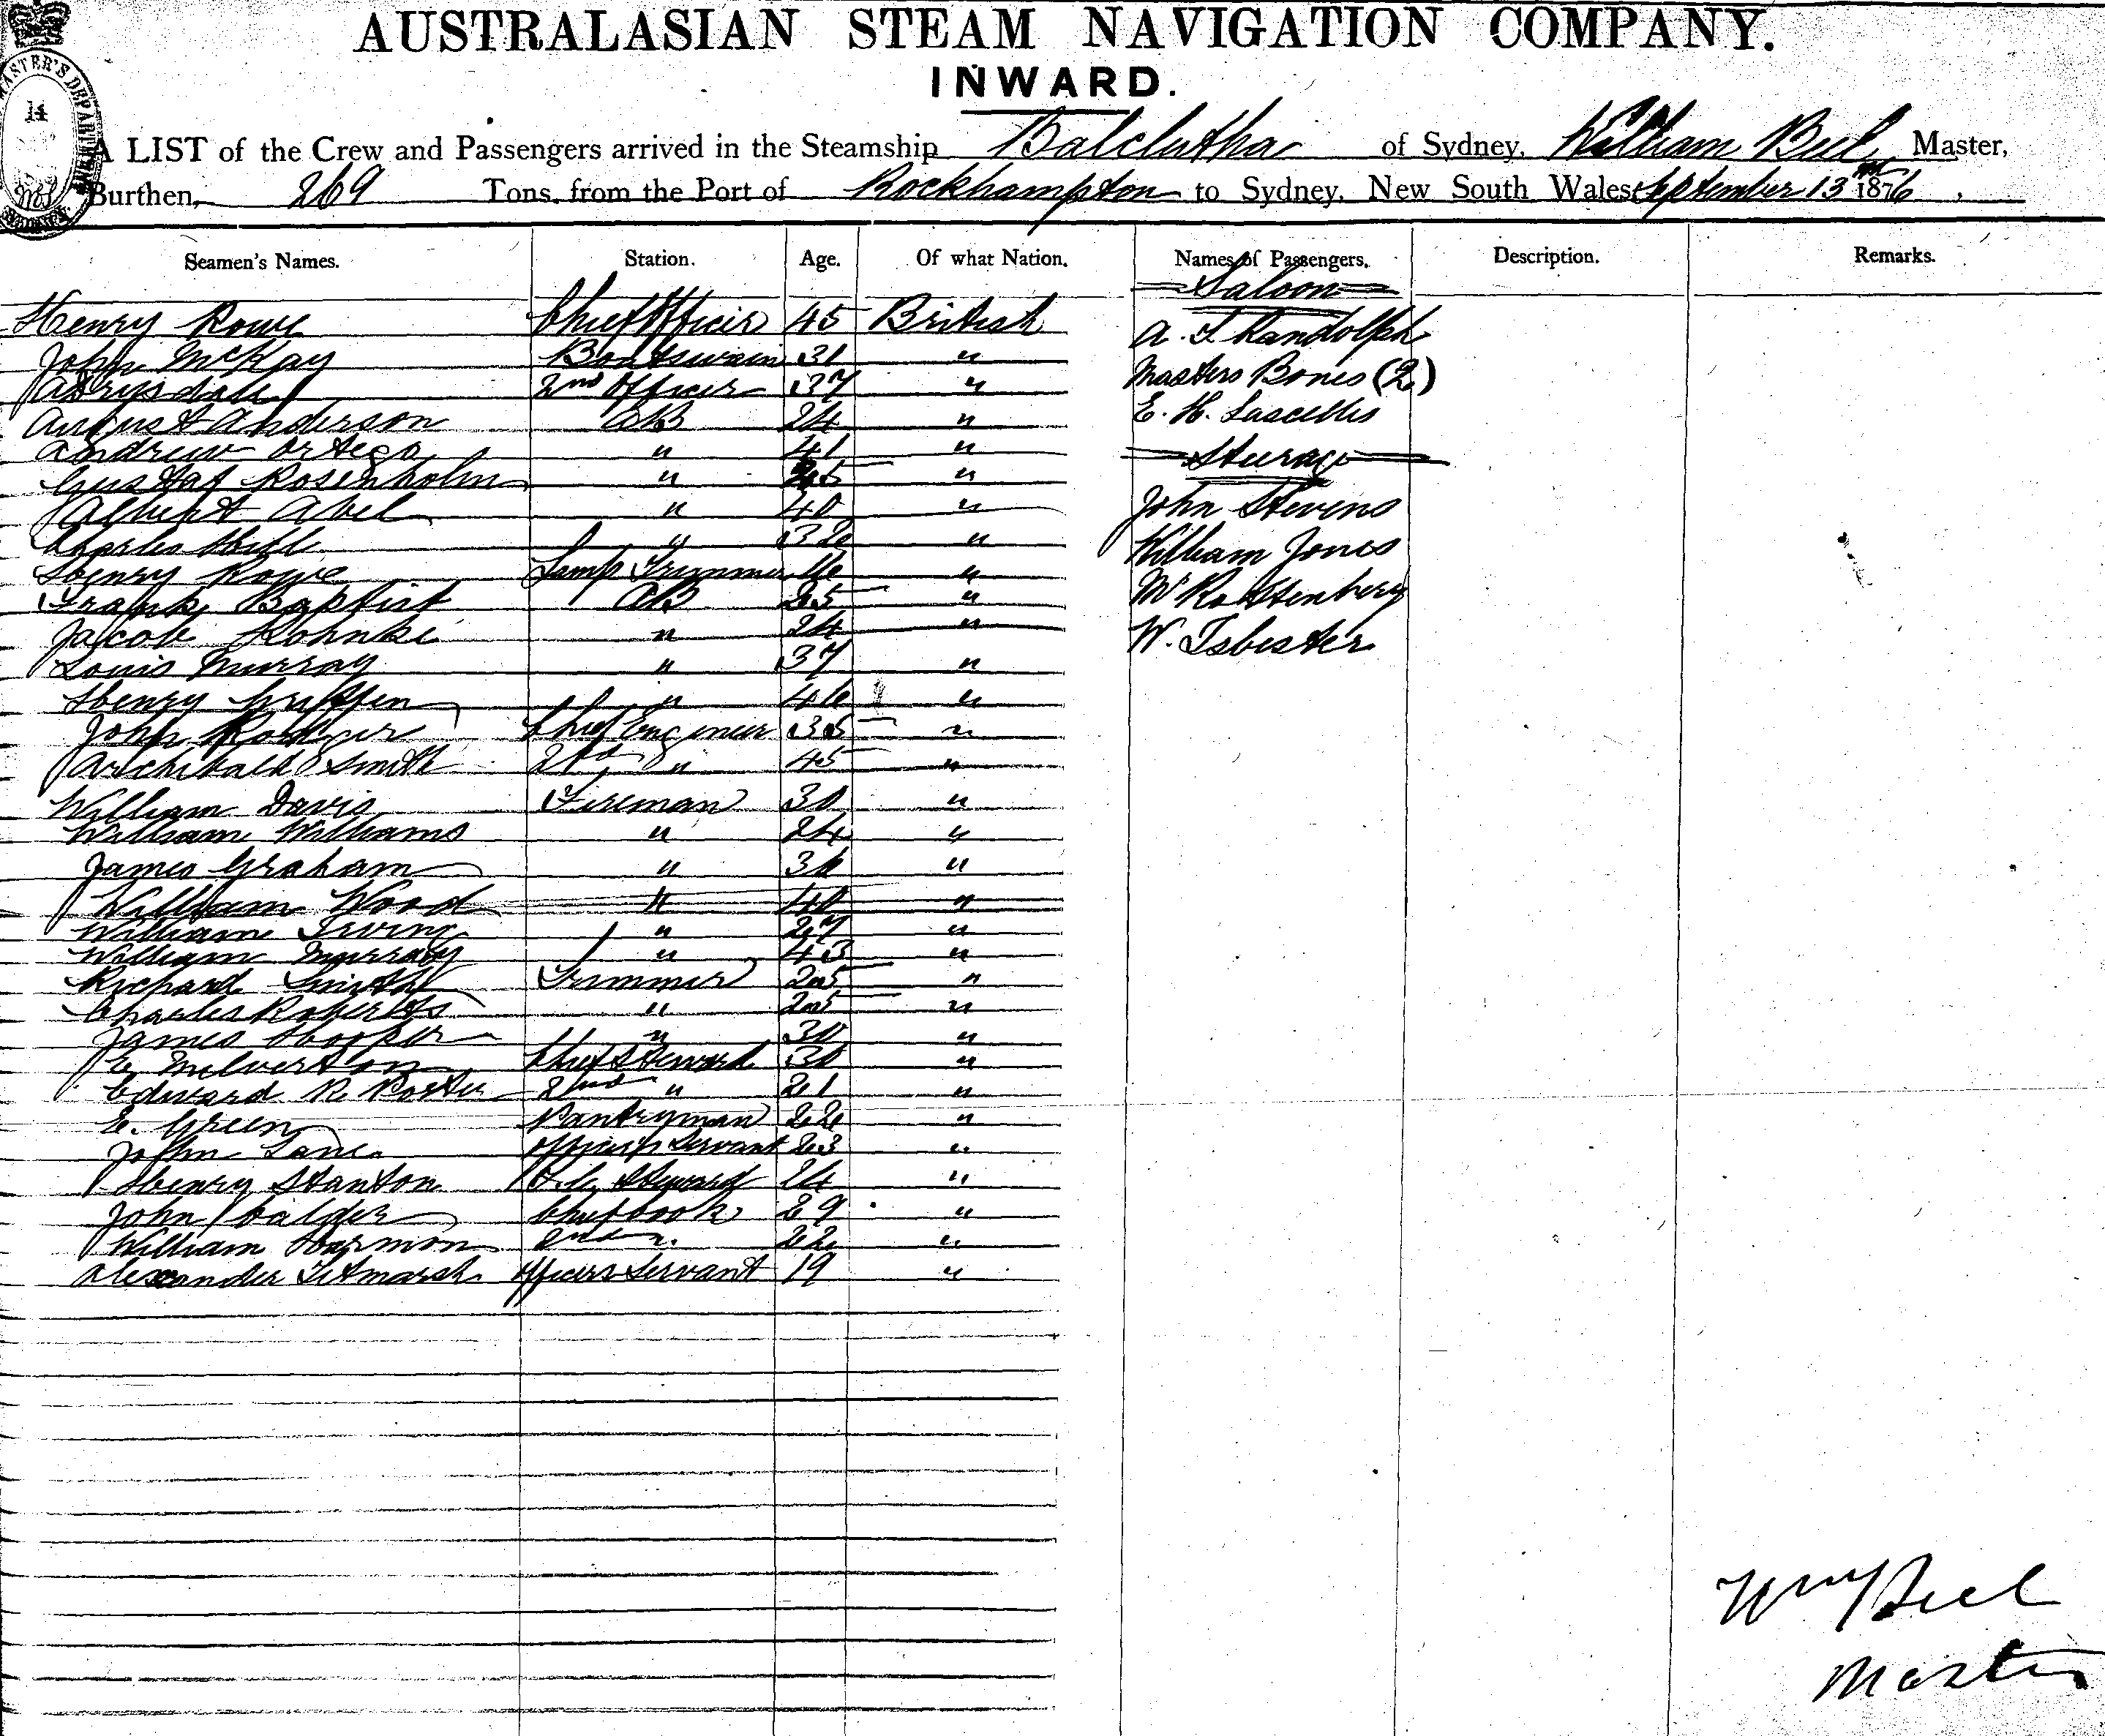 AUSTRALASIAN STEAM NAVIGATION COMPANY.
INWARD.
A LIST of the Crew and Passengers arrived in the Steamship Balclutha of Sydney, William Beel Master,
Burthen, 269 Tons, from the Port of Rockhampton to Sydney, New South Wales September 13th 1876
Seamen's Names. Station. Age. Of what Nation. Names of Passengers. Description. Remarks.
Saloon
Henry Rowe Chief Officer 45 British A. T. Randolph
John McKay Boatswain 31 " Masters Bones (2)
A Drysdale 2nd Officer 37 "
August Anderson AB 24 " E. H. Lascelles
Andrew Ortega " 41 " Steerage
Gustaf Rosenholm " 25 "
Albert Abel " 40 " John Stevens
Charles Hill " 32 " William Jones
Henry Rowe Lamp Trimmer 16 "
Frank Baptist AB 25 " Mr Rottenberg
Jacob Rohnke " 24 " W. Isbister
Louis Murray " 37 "
Henry Griffen " 46 "
John Rodger Chief Engineer 35 "
Archibald Smith 2nd " 45 "
William Davis Fireman 30 "
William Williams " 24 "
James Graham " "
William Wood " 40 "
William Irving " 27 "
William Murray " 43 "
Richard Smith Trimmer 25 "
Charles Roberts " 25 "
James Hooper " 30 "
E Milverton Chief Steward 30 "
Edward R Porter 2nd " 21 "
E. Green Pantryman 22 "
John Lane Officers Servant 23 "
Henry Stanton F.C. Steward 24 "
John Calder Chief Cook 29 "
William Harmon 2nd " 22 "
Alexander Titmarsh Officers Servant 19 "
Wm Beel
Master